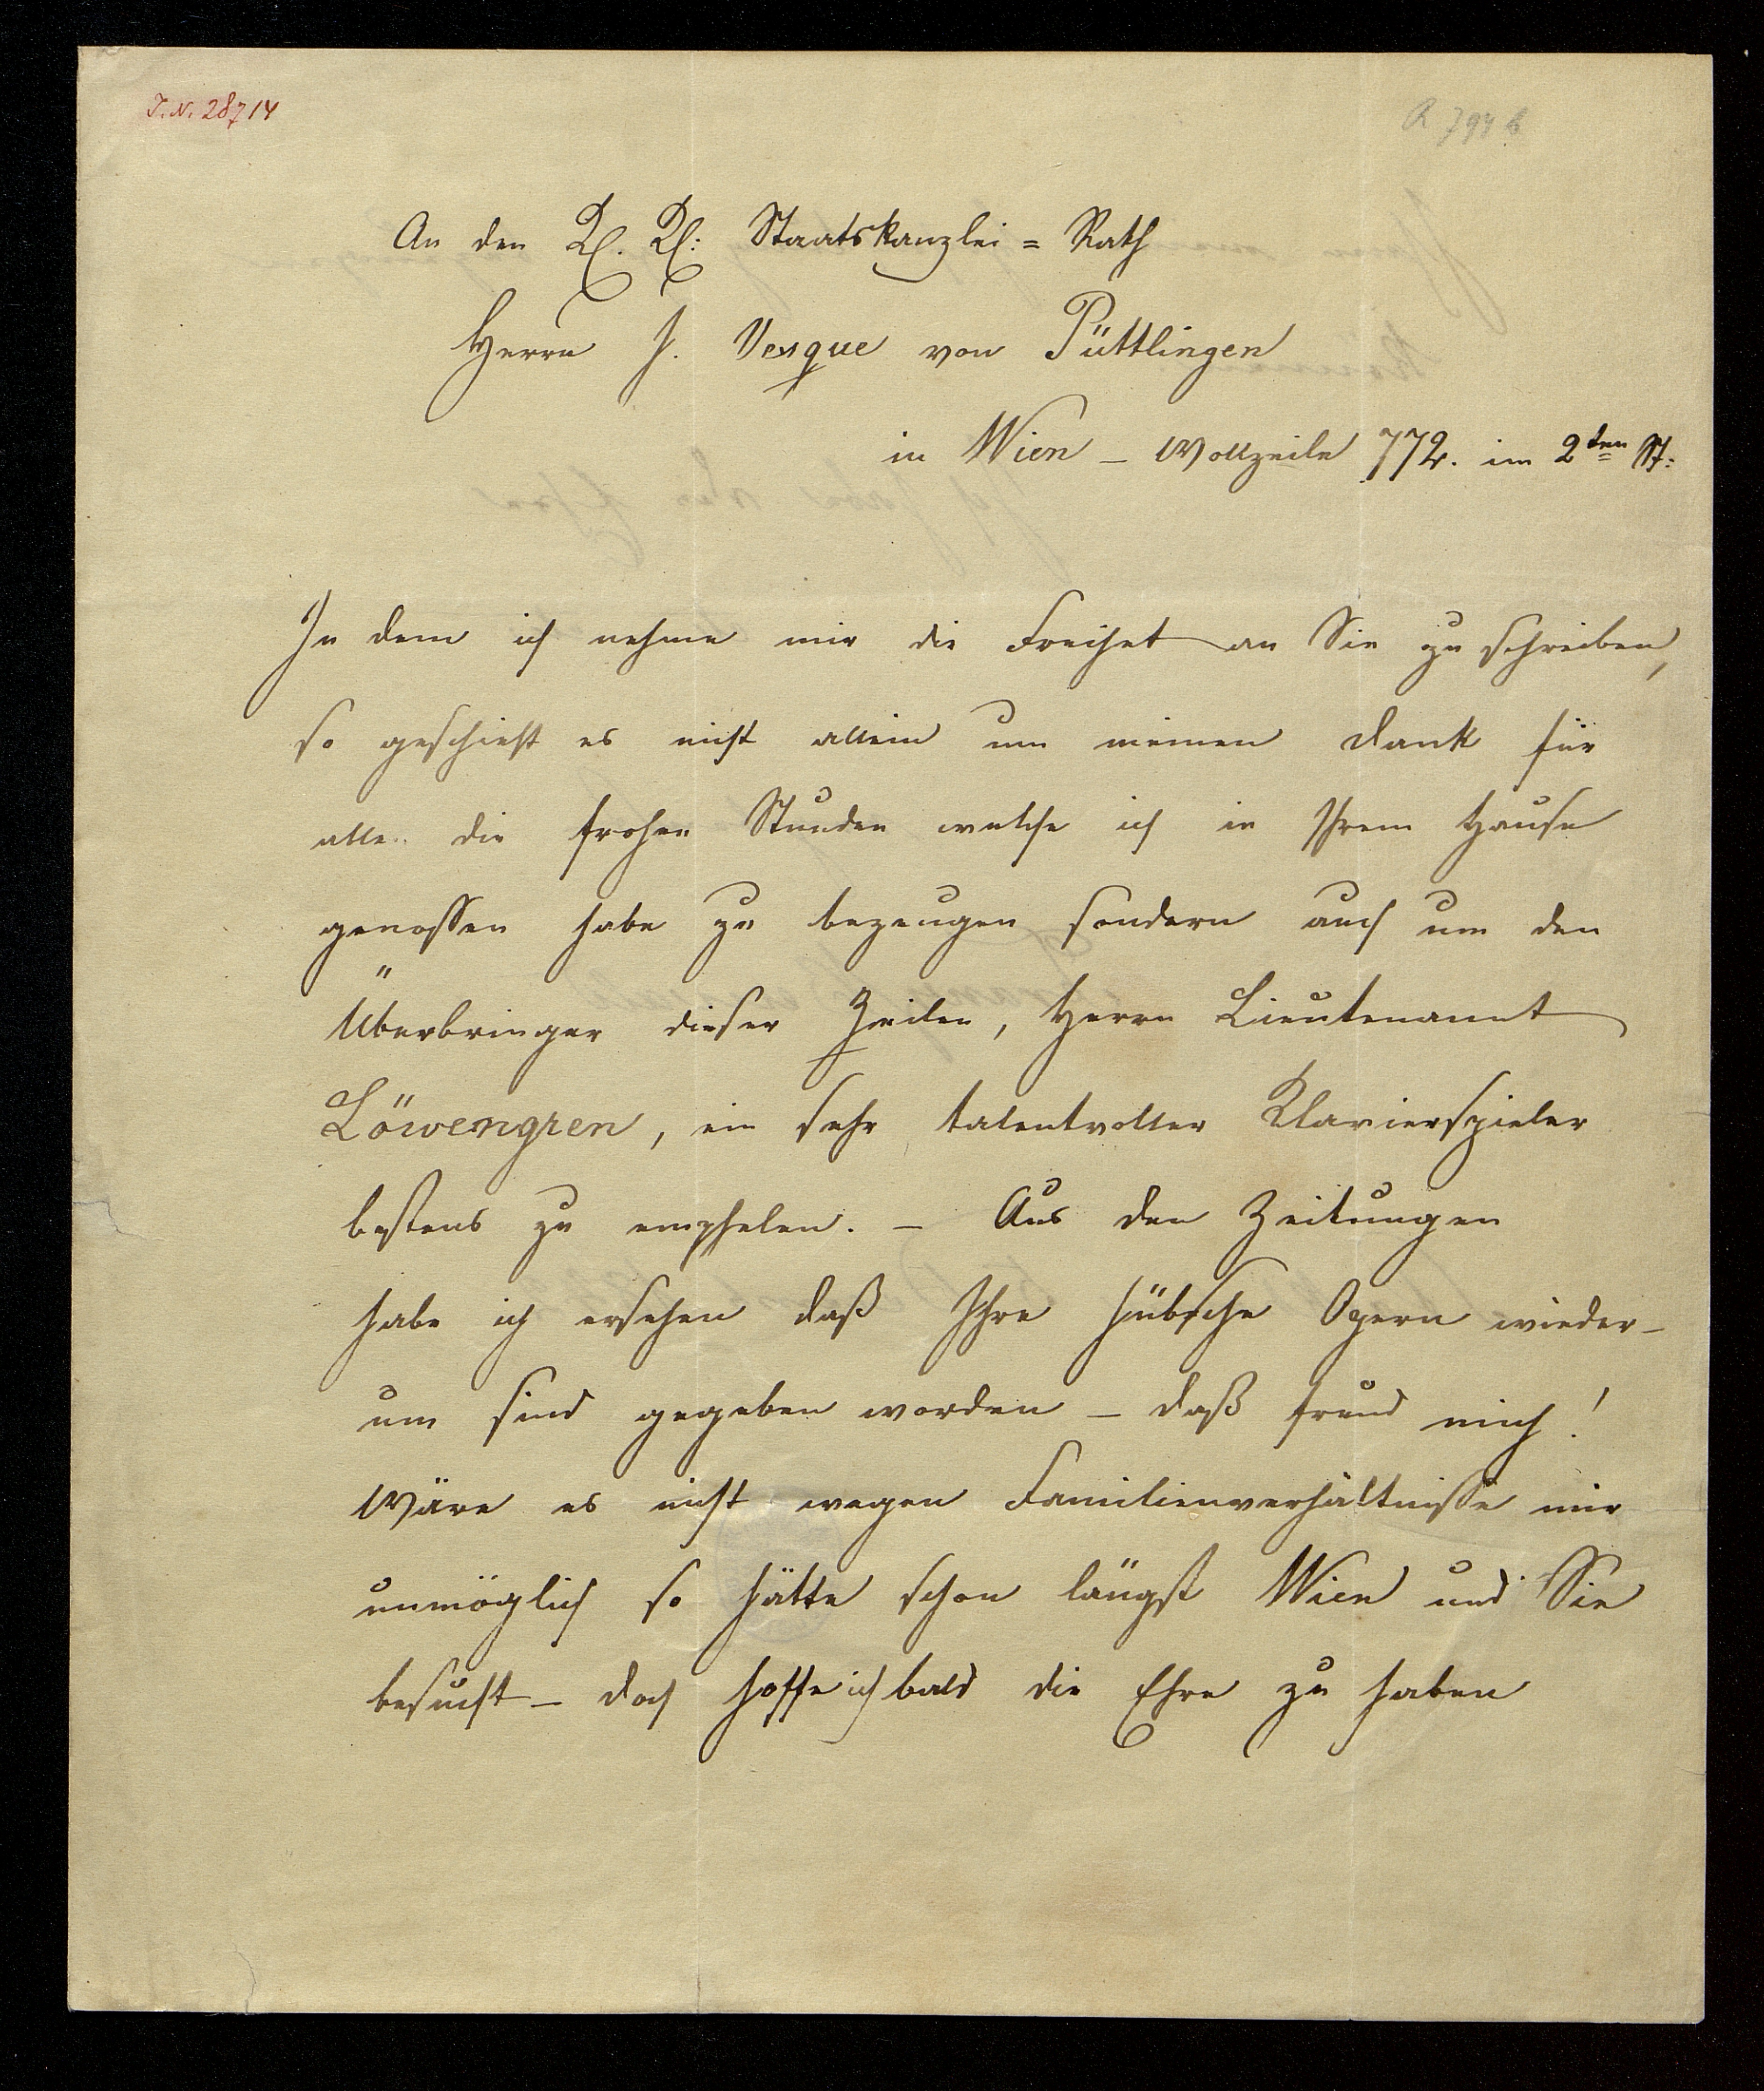 I.N. 28714
A 794 b
An den K. K: Staatskanzlei = Rath
Herrn J. Vesque von Püttlingen
in Wien – Wollzeile 772. im 2ten St:
In dem ich nehme mir die Freihet an Sie zu schreiben,
so geschieht es nicht allein um meinen Dank für
alle die frohen Stunden welche ich in Ihrem Hause
genossen habe zu bezeugen sondern auch um den
Überbringer dieser Zeilen, Herrn Lieutenannt
Löwengren, ein sehr talentvoller Klavierspieler
bestens zu empfelen. – Aus den Zeitungen
habe ich ersehen daß Ihre hübsche Opern wieder-
um sind gegeben worden – daß freud mich!
Wäre es nicht wegen Familienverhältnisse mir
unmöglich so hätte schon längst Wien und Sie
besucht – doch hoffe ich bald die Ehre zu haben